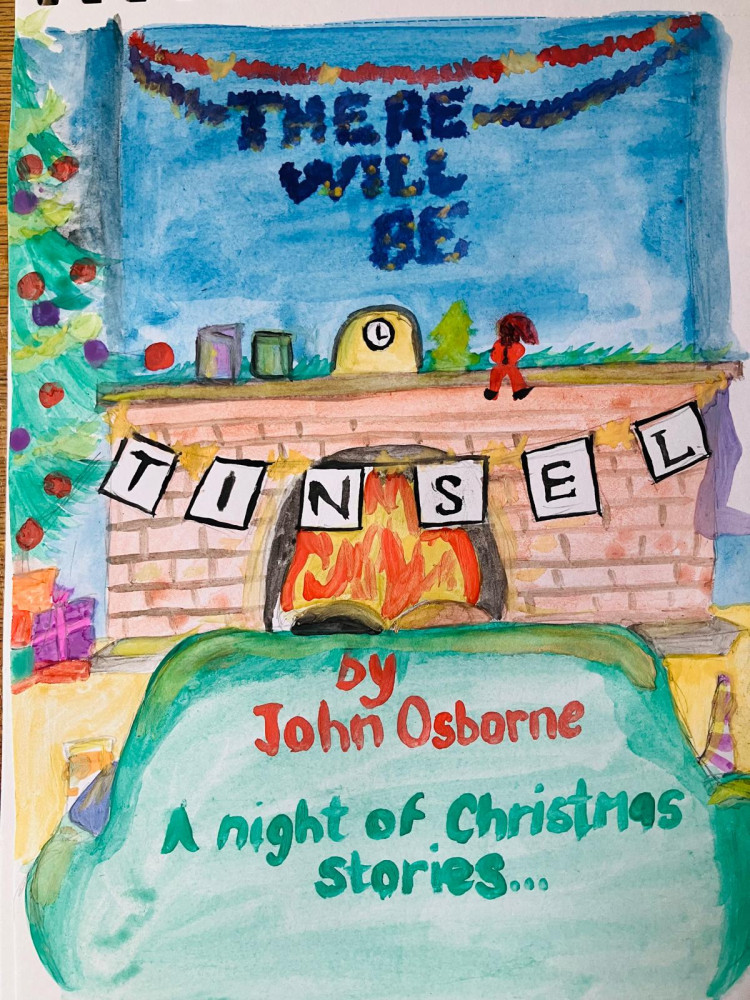 THERE
WILL
BE
TINSEL
by
John Osborne
A night of Christmas
stories...